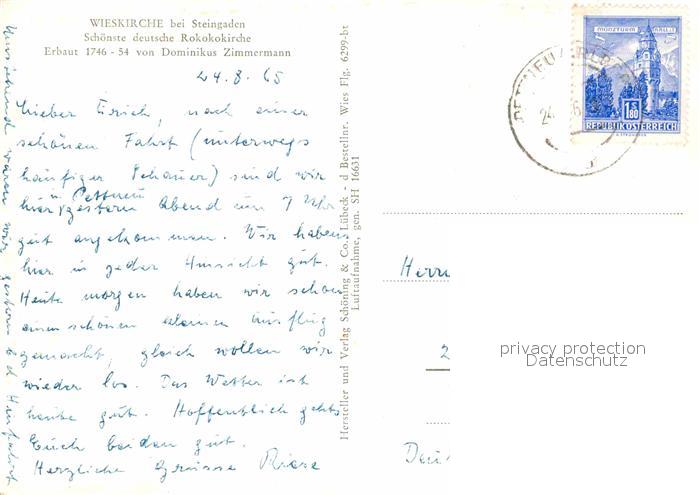 WIESKIRCHE bei Steingaden
Schönste deutsche Rokokokirche
Erbaut 1746 - 54 von Dominikus Zimmermann
24.8.65
Lieber Erich, nach einer
schönen Fahrt (unterwegs
häufiger Schauer) sind wir
hier in Pettneu gestern Abend um 7 Uhr
gut angekommen. Wir habens
hier in jeder Hinsicht gut.
Heute morgen haben wir schon
einen schönen kleinen Ausflug
gemacht, gleich wollen wir
wieder los. Das Wetter ist
heute gut. Hoffentlich gehts
Euch beiden gut.
Herzliche Grüsse
waren wir gestern a d Hinfahrt
Hersteller und Verlag Schöning & Co., Lübeck - d Bestellnr. Wies Flg. 6299-bt
Luftaufnahme, gen. SH 16631
MÜNZTURM HALL i. T.
1.80
REPUBLIK ÖSTERREICH
PETTNEU
24
Herrn
2
privacy protection
Datenschutz
Deu